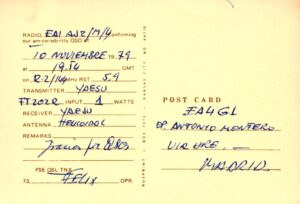 RADIO EA1AJZ/M/4 confirming
our QSO of
10 NOVIEMBRE 1979
at 19.54 GMT
on R-2/144 RST 59
TRANSMITTER YAESU
FT202R INPUT 1 WATTS
RECEIVER YAESU
ANTENNA HELICOIDAL
REMARKS
PSE QSL TNX
73, FELIX OPR.
POST CARD
EA4GL
OP. ANTONIO MONTERO
MADRID